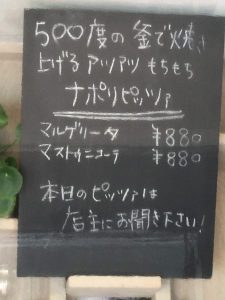 500度の釜で焼き
上げるアツアツもちもち
ナポリピッツァ
マルゲリータ ¥880
マストゥニコーラ ¥880
本日のピッツァは
店主にお聞き下さい!